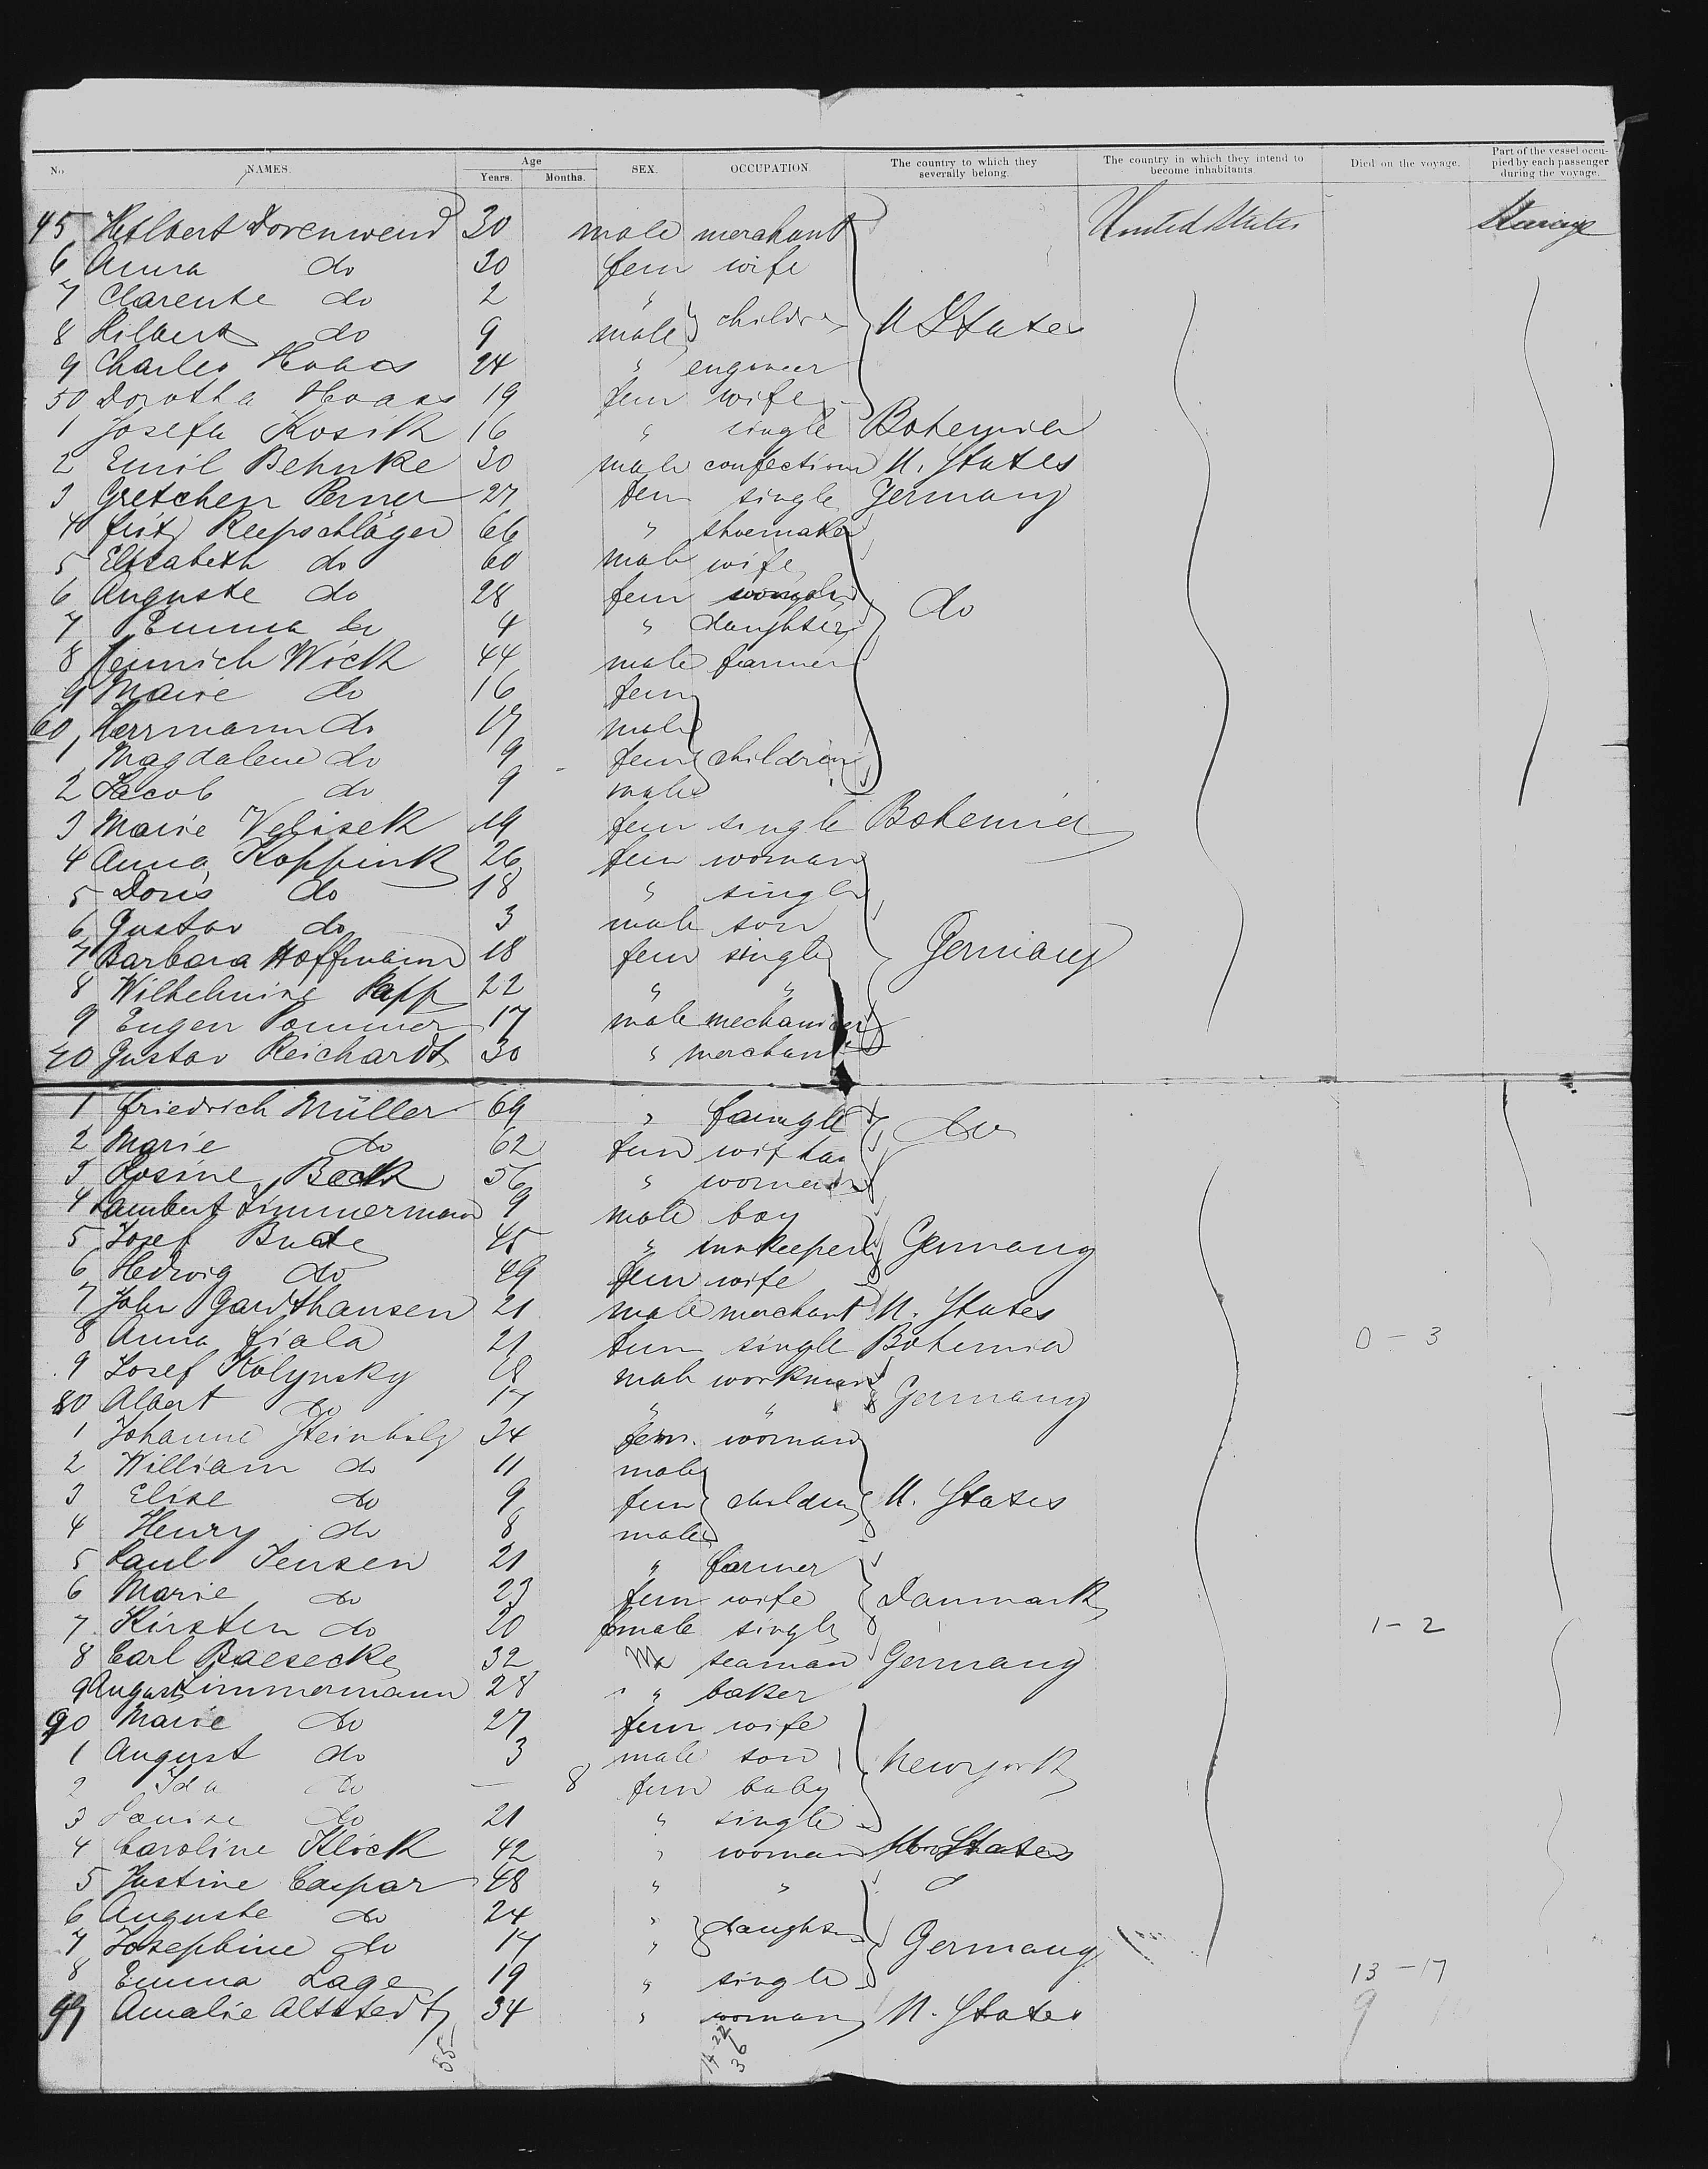 No. NAMES. Age Years. Months. SEX. OCCUPATION The country to which they severally belong. The country in which they intend to become inhabitants. Died on the voyage. Part of the vessel occupied by each passenger during the voyage.
45 Hilbert Dorenwend 30 male merchant United States Steerage
6 Anna do 30 fem wife
7 Clarente do 2 "
8 Hilbert do 9 male childre U States
9 Charles Haas 24 " engineer
50 Dorotha Haass 19 fem wife
1 Josefa Kosik 16 " single Bohemia
2 Emil Behnke 30 male confection U. States
3 Gretchen Perner 27 fem single Germany
4 Fritz Reepschläger 66 " shoemaker
5 Elisabeth do 60 male wife
6 Auguste do 28 fem do
7 Emma do 4 " daughter
8 Heinrich Wick 44 male farmer
9 Marie do 16 fem
60 Herrmann do 17 male
1 Magdalene do 9 fem children
2 Jacob do 9 male
3 Marie Velisek 19 fem single Bohemia
4 Anna Koppink 26 fem woman
5 Doris do 18 " single
6 Gustav do 3 male son
7 Barbara Hoffmann 18 fem single Germany
8 Wilhelmine Papp 22 " "
9 Eugen Pommer 17 male mechanicer
70 Gustav Reichardt 30 " merchant
1 Friedrich Müller 69 " do
2 Marie do 62 fem
3 Rosine Beck 56 " woman
4 Lambert Zimmermann 9 male boy
5 Josef Bude 45 " innkeeper Germany
6 Hedwig do 49 fem wife
7 John Gardthausen 21 male merchant U. States
8 Anna Fiala 21 fem single Bohemia 0 - 3
9 Josef Kolynsky 18 male workman
80 Albert do 17 " " Germany
1 Johanne Steinbilg 34 fem. woman
2 William do 11 male
3 Elise do 9 fem children U. States
4 Henry do 8 male
5 Paul Jensen 21 " farmer
6 Marie do 23 fem wife Danmark
7 Kirsten do 20 female single 1 - 2
8 Carl Baesecke 32 seaman Germany
9 August Zimmermann 28 " baker
90 Marie do 27 fem wife
1 August do 3 male son Newyork
2 Ida do — 8 fem baby
3 Louise do 21 " single
4 Caroline Klöck 42 " woman U. States
5 Justine Caspar 48 " "
6 Auguste do 24 " daughter
7 Josephine do 17 " Germany
8 Emma Lage 19 " single 13 - 17
99 Amalie Altstedt 34 " woman U. States 9
55
14-22
36